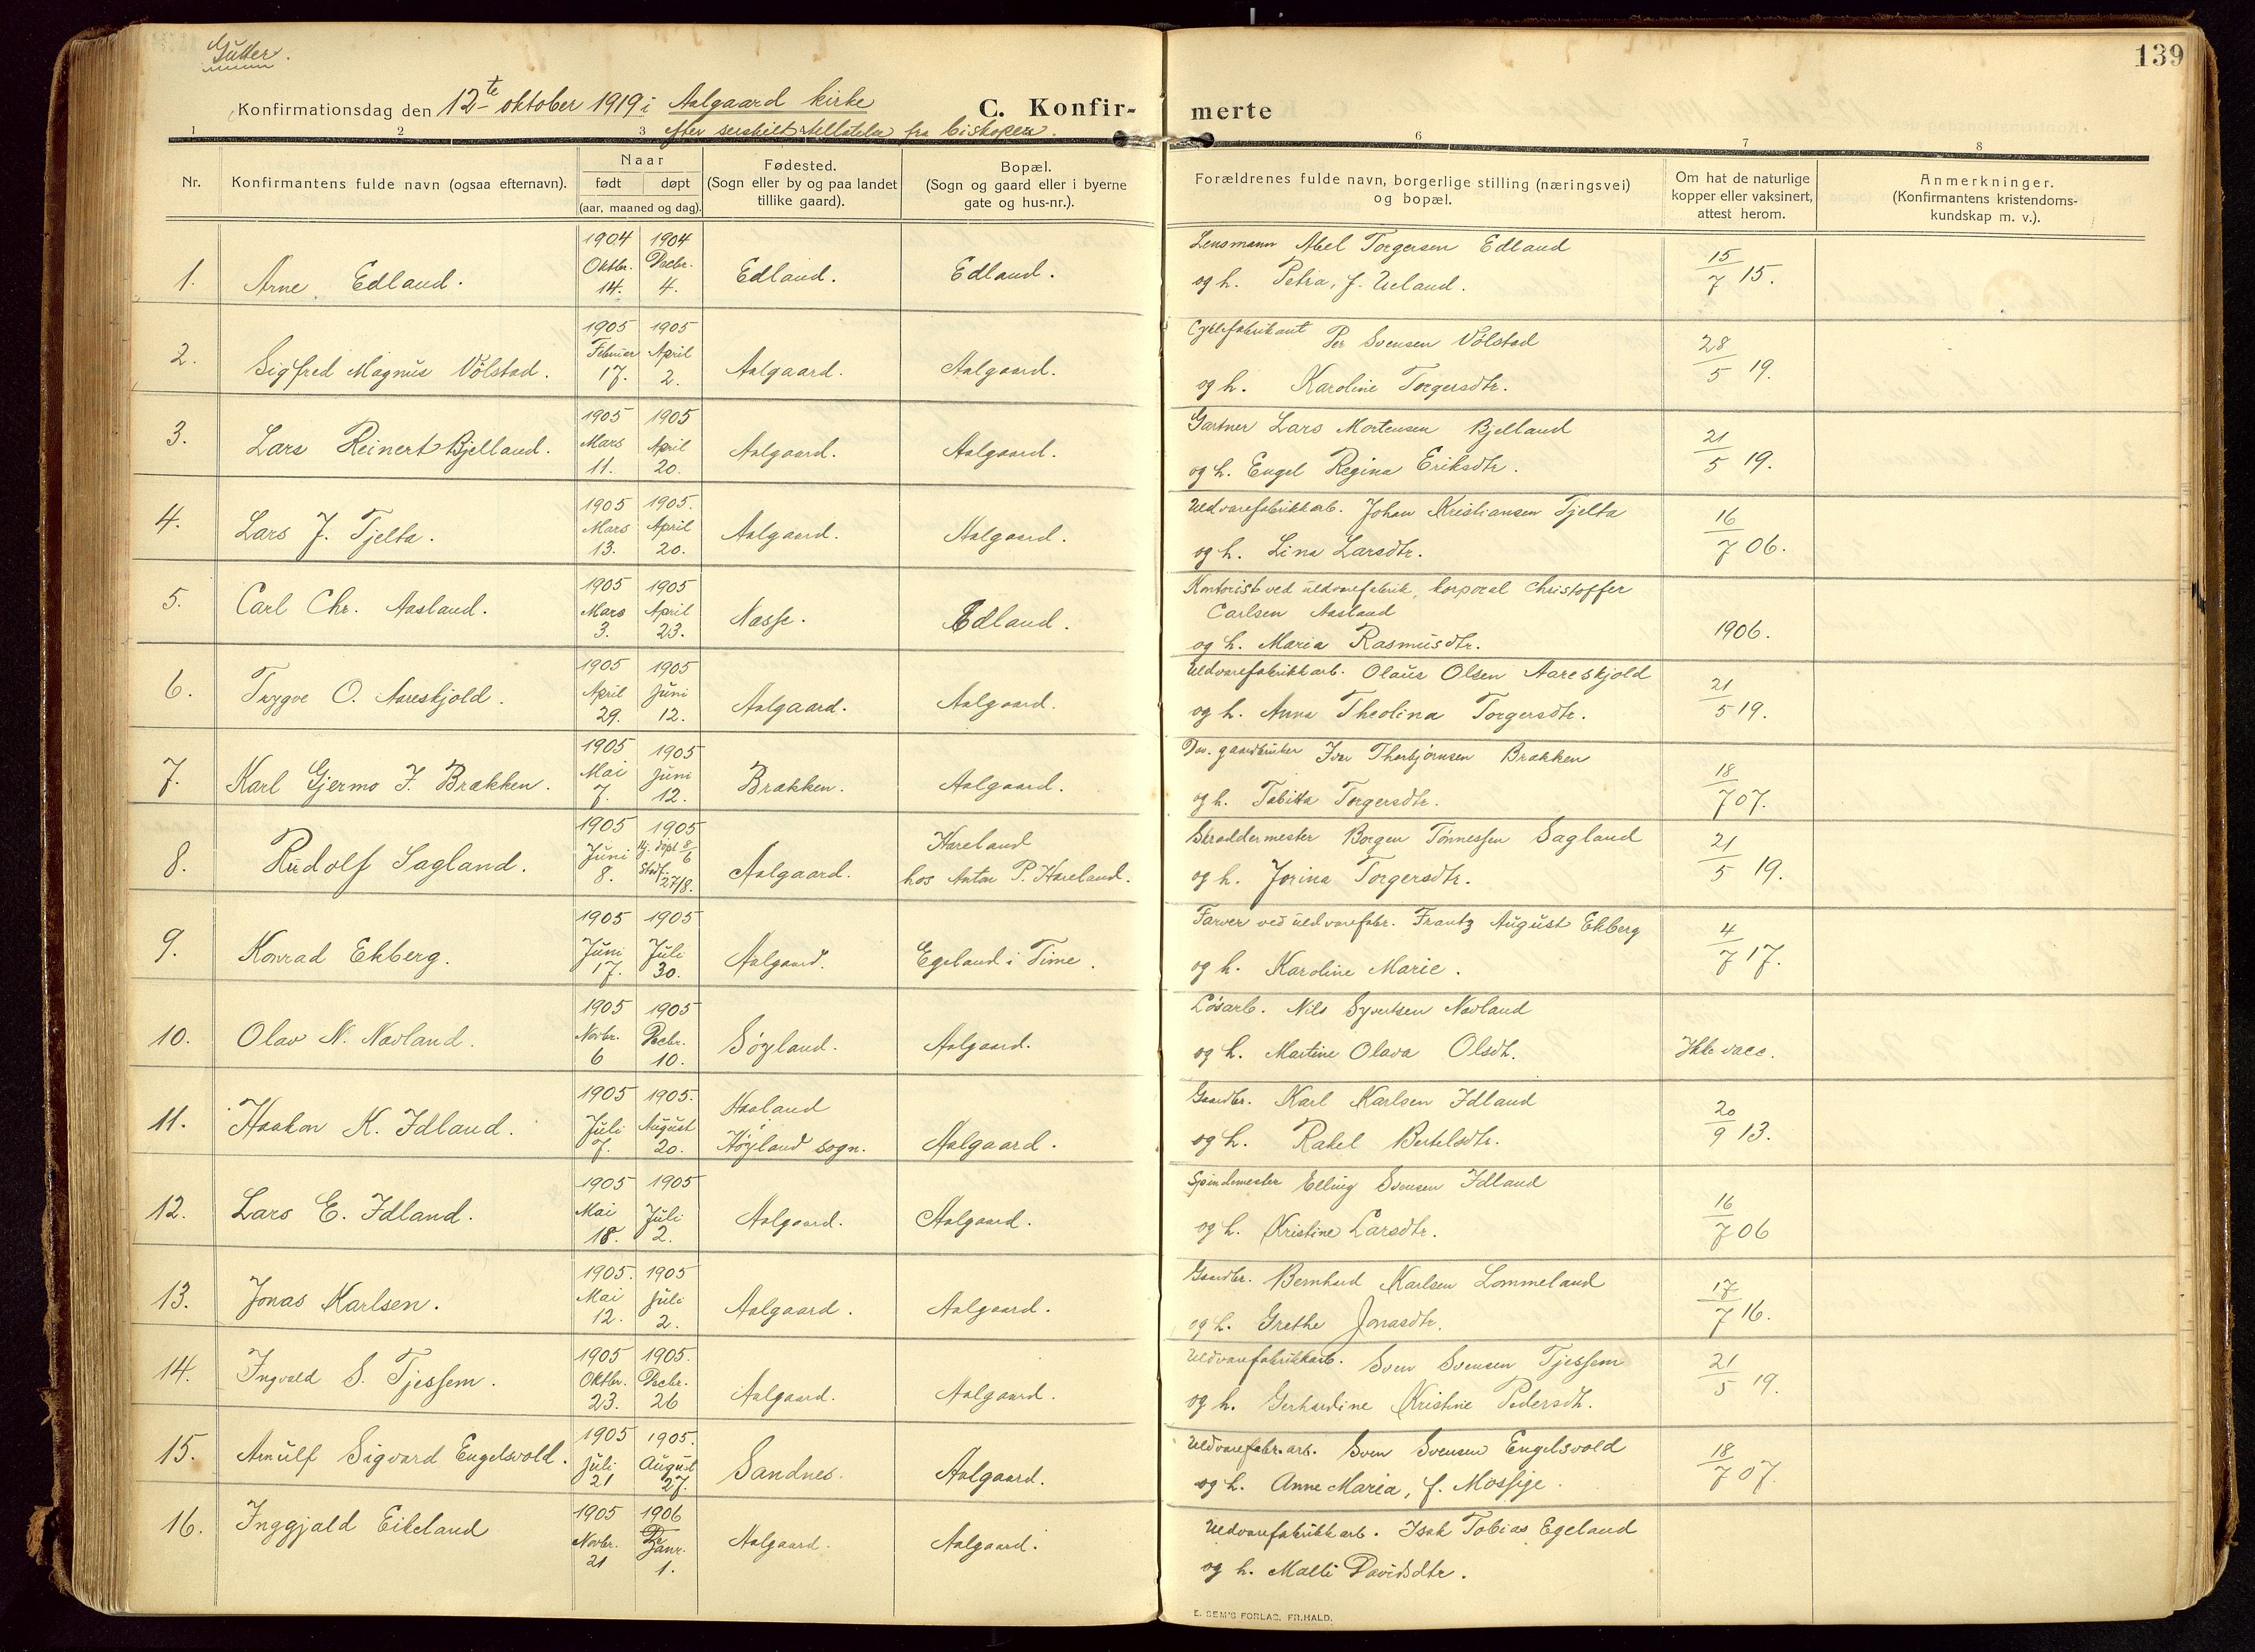 Gutter.
139
Konfirmationsdag den 12te oktober 1919 i Aalgaard kirke
C. Konfir-
merte
efter fra biskopen.
1 2 3 6 7 8
Nr.
Konfirmantens fulde navn (ogsaa efternavn).
Naar
født døpt
(aar, maaned og dag).
Fødested.
(Sogn eller by og paa landet
tillike gaard).
Bopæl.
(Sogn og gaard eller i byerne
gate og hus-nr.).
Forældrenes fulde navn, borgerlige stilling (næringsvei)
og bopæl.
Om hat de naturlige
kopper eller vaksinert,
attest herom.
Anmerkninger.
(Konfirmantens kristendoms-
kundskap m. v.).
1904 1904 Lensmann Abel Torgersen Edland
1. Arne Edland. Oktbr. Decbr. Edland. Edland. 15/7 15.
14. 4. og h. Petra, f. Ueland.
1905 1905 Cyklefabrikant Per Svensen Vølstad
2. Sigfred Magnus Vølstad. Februar April Aalgaard. Aalgaard. 28/5 19.
17. 2. og h. Karoline Torgersdtr.
1905 1905 Gartner Lars Mortensen Bjelland
3. Lars Reinert Bjelland. Mars April Aalgaard. Aalgaard. 21/5 19.
11. 20. og h. Engel Regina Eriksdtr.
1905 1905. Uldvarefabrikkarb. Johan Kristiansen Tjelta
4. Lars J. Tjelta. Mars April Aalgaard. Aalgaard. 16/7 06.
13. 20. og h. Lina Larsdtr.
1905 1905 Kontorist ved uldvarefabrik, korporal Christoffer
5. Carl Chr. Aasland. Mars April Næsse. Edland. Carlsen Aasland 1906.
3. 23. og h. Maria Rasmusdtr.
1905 1905 Uldvarefabrikkarb. Olaus Olsen Aareskjold
6. Trygve O. Aareskjold. April Juni Aalgaard. Aalgaard. 21/5 19.
29. 12. og h. Anna Theolina Torgersdtr.
1905 1905 gaardbruker Ivar Thorbjørnsen Brækken
7. Karl Gjermo I. Brækken. Mai Juni Brækken. Aalgaard. 18/7 07.
7. 12. og h. Tabitta Torgersdtr.
1905 1905 Skræddermester Borgen Tønnessen Sagland
8. Rudolf Sagland. Juni Hj. døpt 8/6 Aalgaard. Hareland 21/5 19.
8. Stadf. 27/8. hos Anton P. Hareland. og h. Jorina Torgersdtr.
1905 1905 Farver ved uldvarefabr. Frantz August Ekberg
9. Konrad Ekberg. Juni Juli Aalgaard. Egeland i Time. 4/7 17.
17. 30. og h. Karoline Marie.
1905 1905 Løsarb. Nils Syvertsen Nævland
10. Olav N. Nævland. Novbr. Decbr. Søyland. Aalgaard. Ikke vacc.
6 10. og h. Martine Olava Olsdt.
1905 1905. Haaland Gaardbr. Karl Karlsen Idland
11. Haakon K. Idland. Juli August Høyland sogn. Aalgaard. 20/9 13.
7. 20. og h. Rakel Bertelsdtr.
1905 1905 Spindemester Elling Svensen Idland
12. Lars E. Idland. Mai Juli Aalgaard. Aalgaard. 16/7 06
18. 2. og h. Kristine Larsdtr.
1905. 1905 Gaardbr. Bernhard Karlsen Lommeland
13. Jonas Karlsen. Mai Juli Aalgaard. Aalgaard. 17/7 16.
12. 2. og h. Grethe Jonasdtr.
1905 1905. Uldvarefabrikkarb. Sven Svensen Tjessem
14. Ingvald S. Tjessem. Oktbr. Decbr. Aalgaard. Aalgaard. 21/5 19.
23. 26 og h. Gerhardine Kristine Pedersdt.
1905 1905. Uldvarefabr.arb. Sven Svensen Engelsvold
15. Arnulf Sigvard Engelsvold. Juli August Sandnes. Aalgaard. 18/7 07.
21 27. og h. Anne Maria, f. Mossige.
1905 1906 Uldvarefabrikkarb. Isak Tobias Egeland
16. Inggjald Eikeland Novbr. Janr. Aalgaard. Aalgaard.
21 1. og h. Malli Davidsdtr.
E. SEM'S FORLAG. FR.HALD.